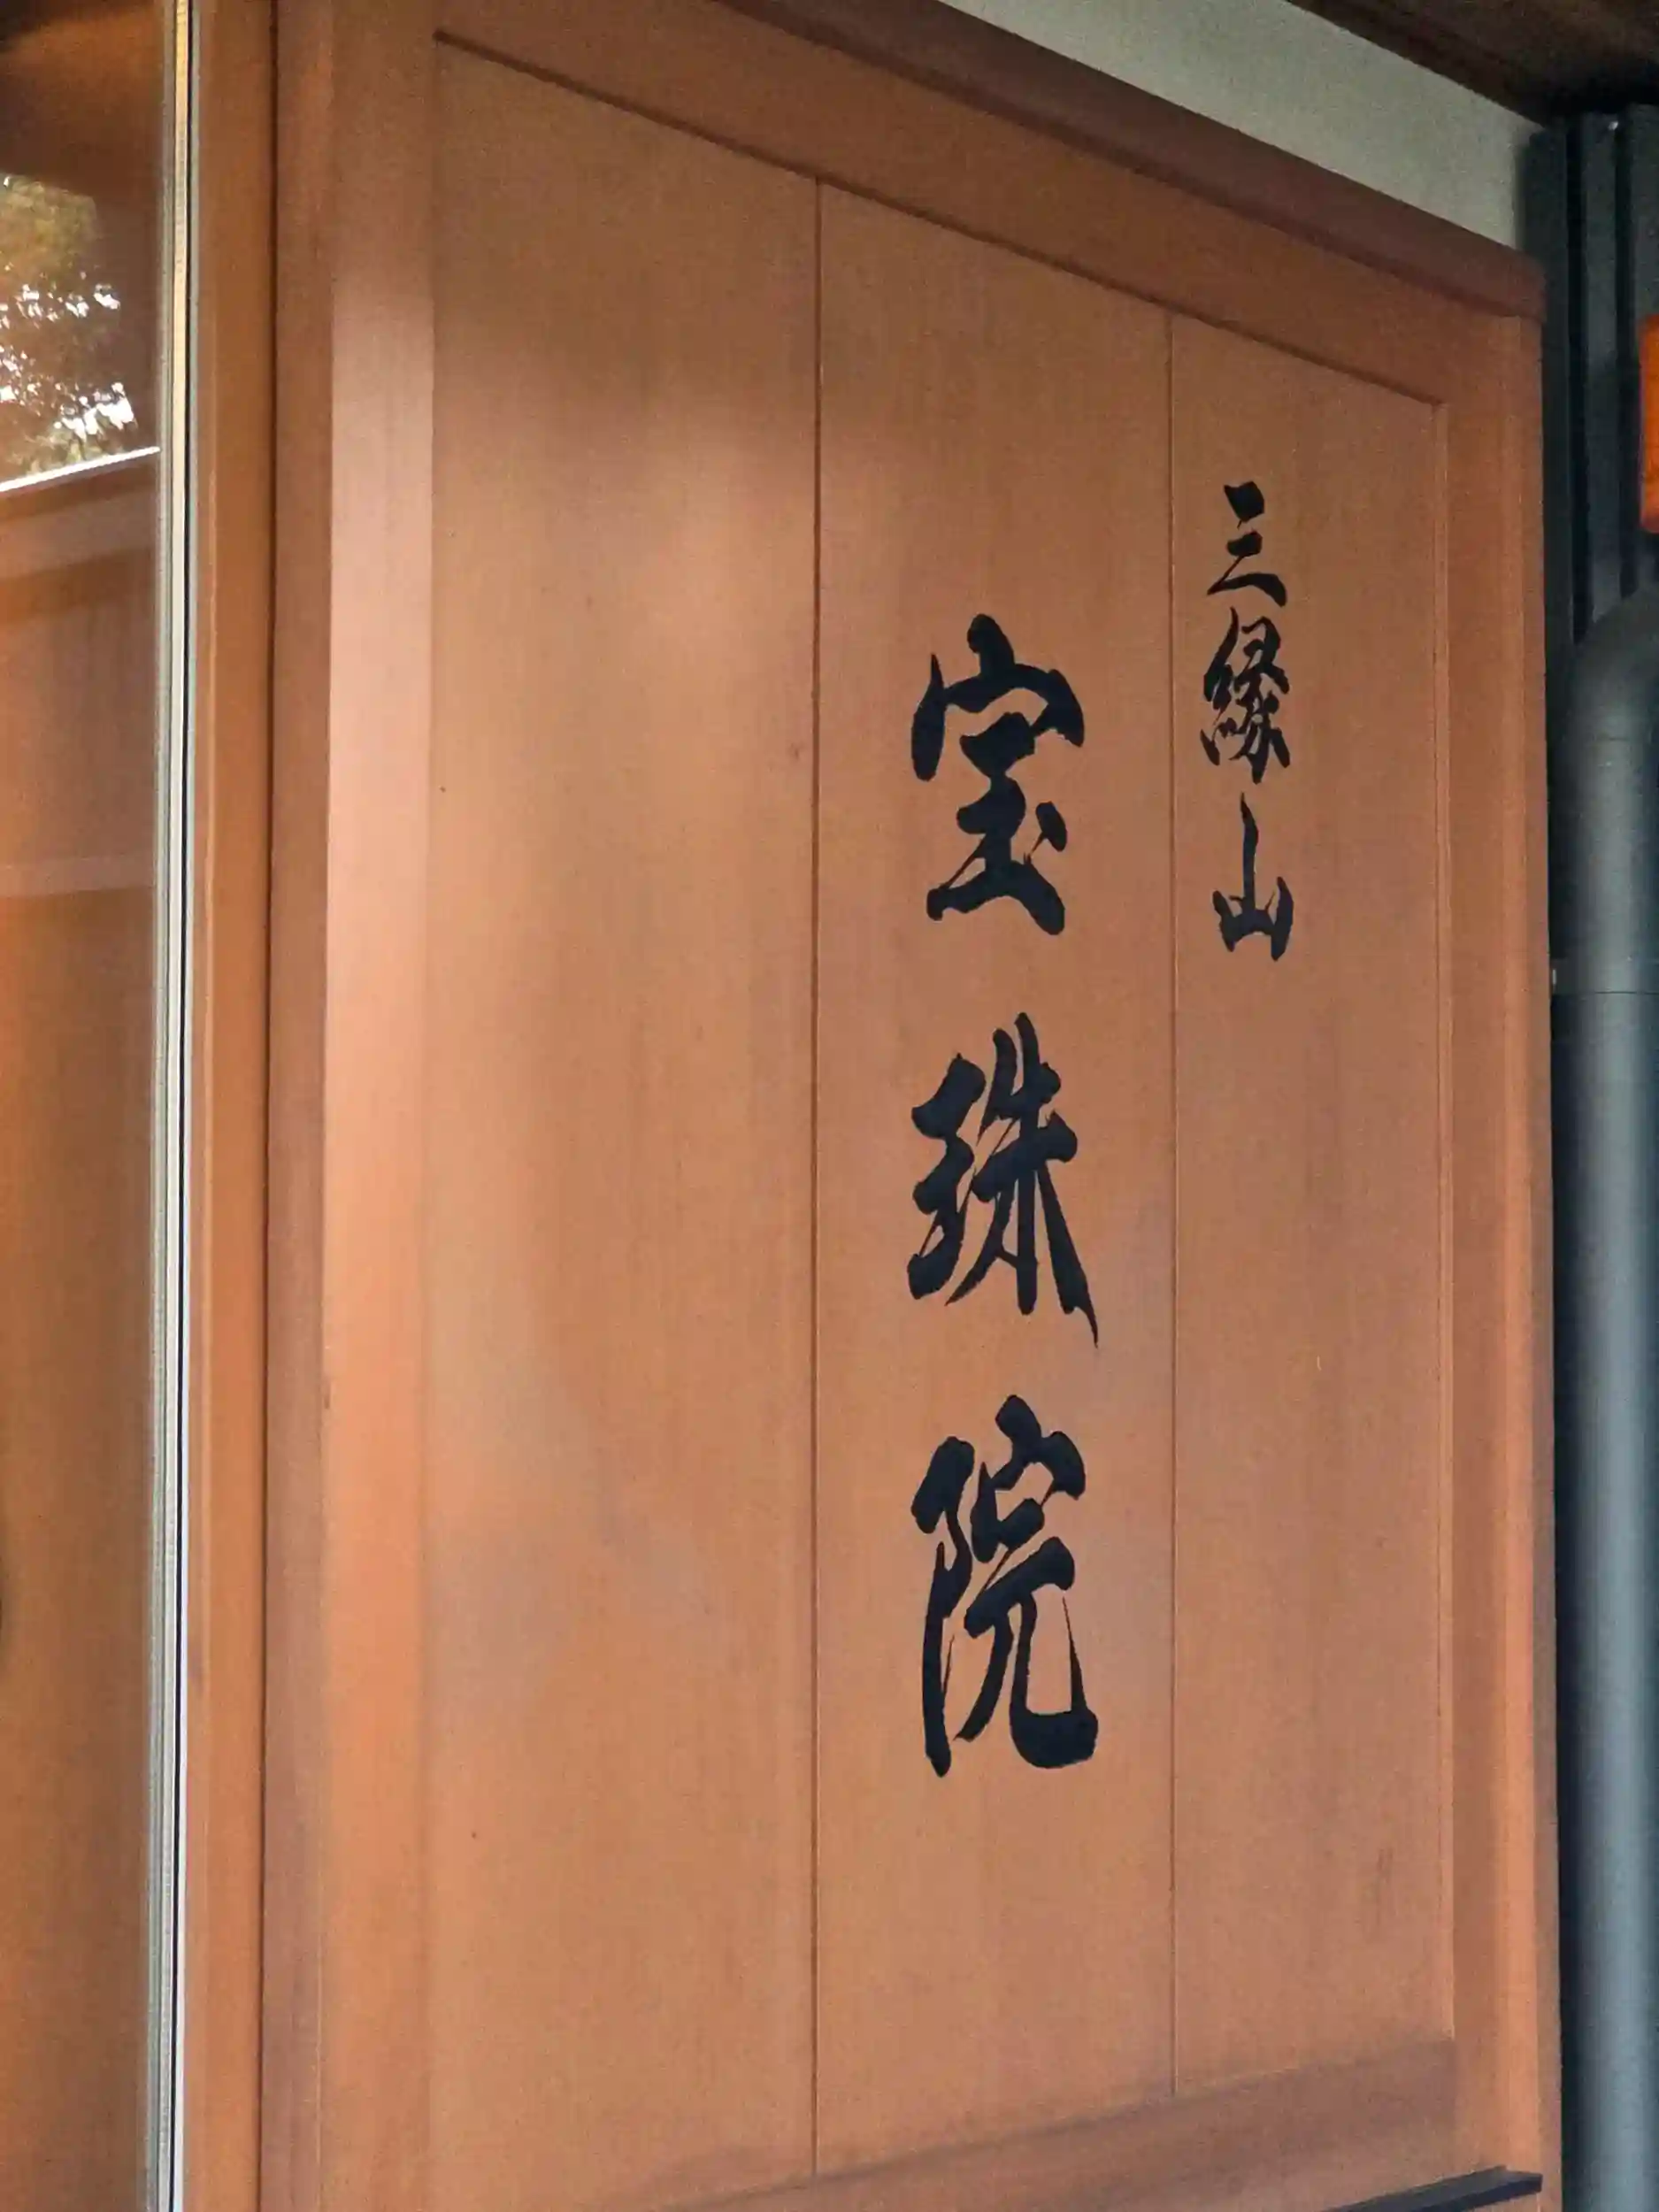 三縁山
宝珠院